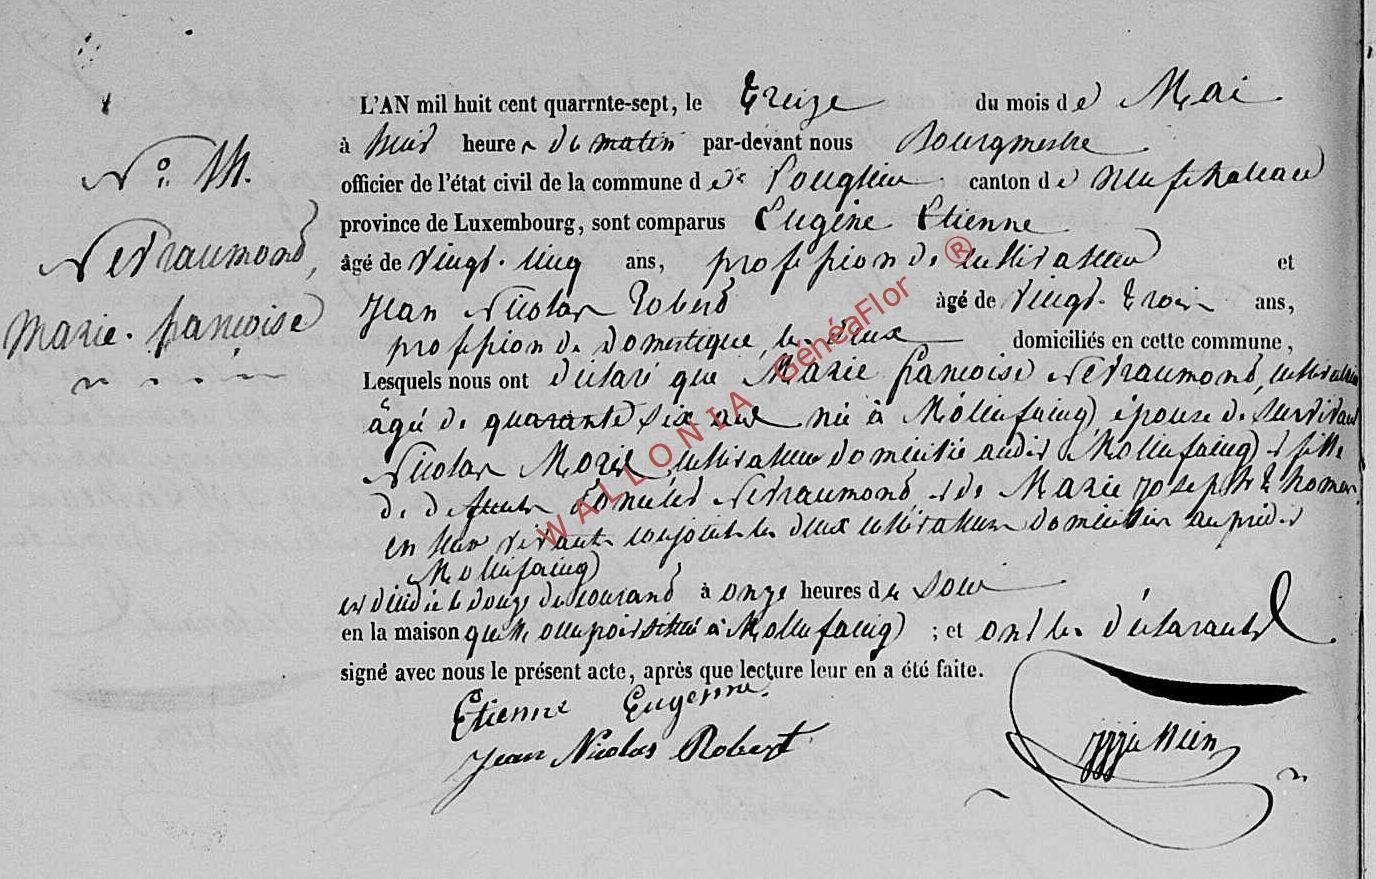 L'AN mil huit cent quarrnte-sept, le treize du mois de Mai
à huit heures du matin par-devant nous Bourgmestre
officier de l'état civil de la commune de canton de neufchateau
N°
province de Luxembourg, sont comparus Eugène Etienne
Netraumond,
âgé de vingt-cinq ans, profession de cultivateur et
Jean Nicolas Robert âgé de vingt-trois ans,
Marie-françoise
profession de domestique, les deux domiciliés en cette commune,
Lesquels nous ont déclaré que Marie françoise Netraumond, cultivatrice
âgée de quarante six ans née à Mollefaing, épouse de survivant
Nicolas cultivateur domicilié audit Mollefaing, et fille
de défunts Netraumond et de Marie joseph thomas
en leur vivant conjoints les deux cultivateurs domiciliés au prédit
Mollefaing
est décédée le douze du courant à onze heures du soir
en la maison qu'elle occupoit située à Mollefaing ; et ont les déclarants
signé avec nous le présent acte, après que lecture leur en a été faite.
Etienne Eugenne.
Jean Nicolas Robert
WALLONIA GénéaFlor ®